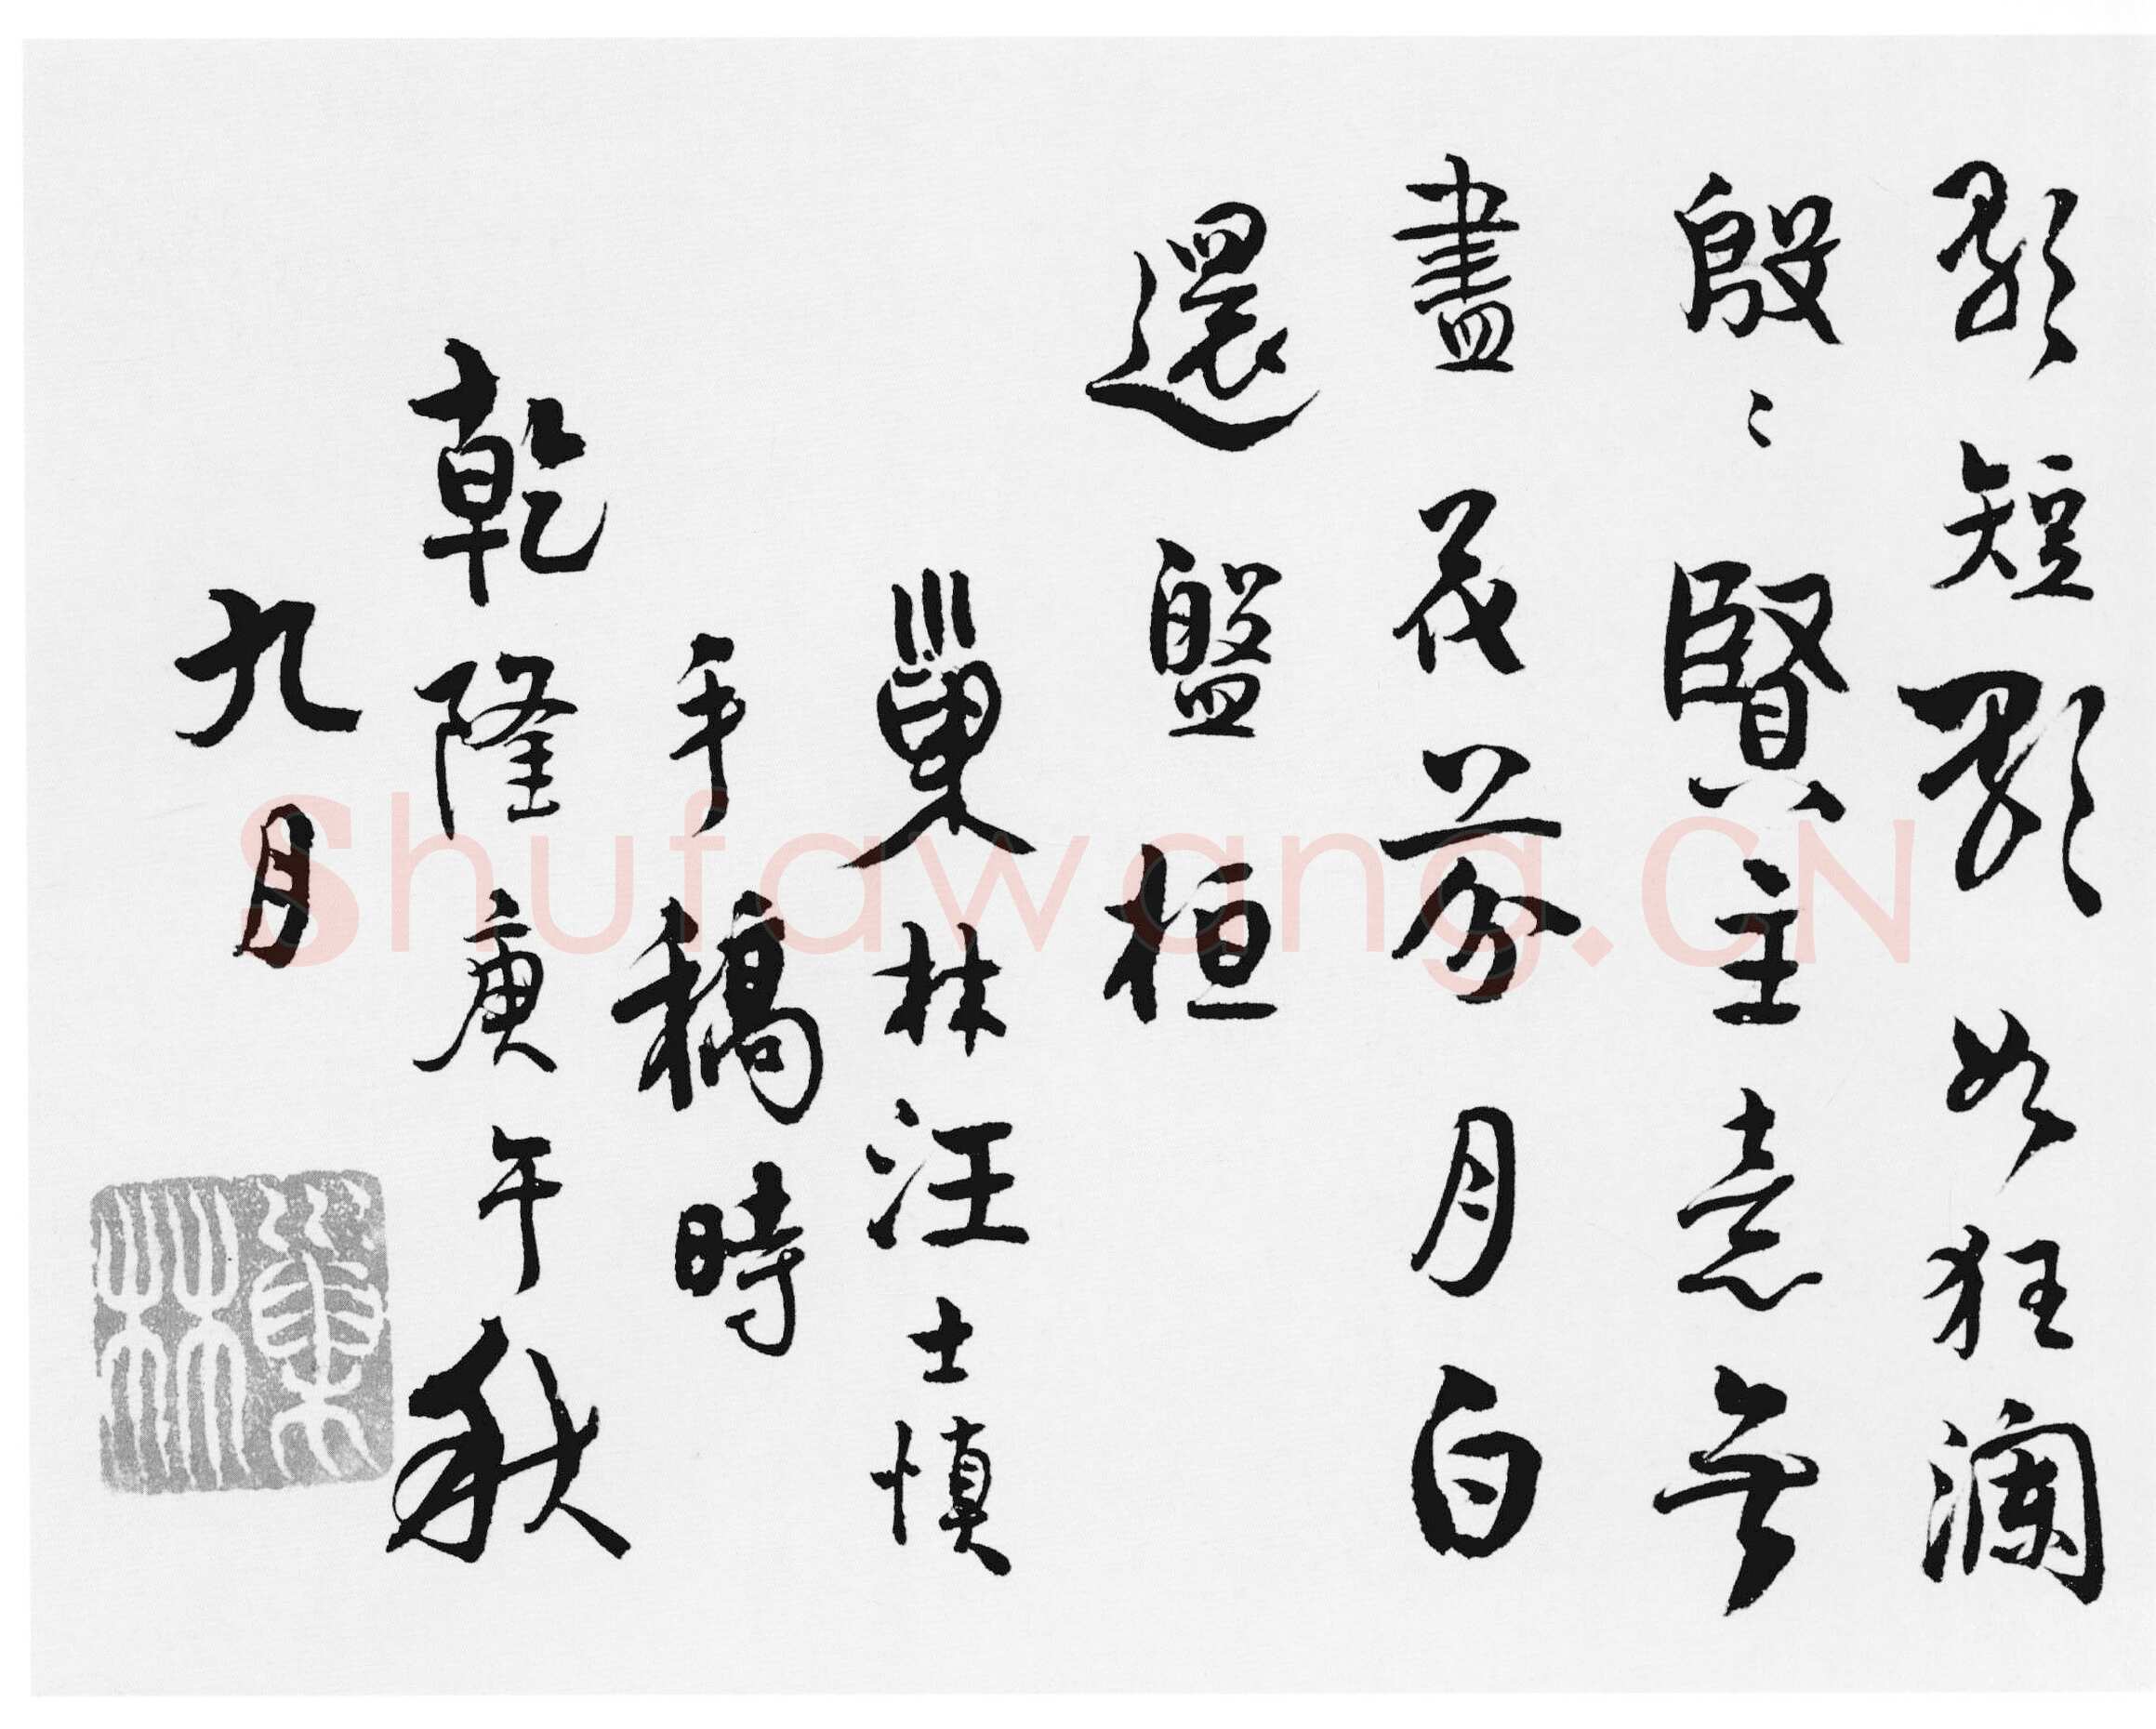 歌短歌如狂瀾
殷〻賢主意無
盡茂芬月白
還盤桓
巢林汪士慎
手稿時
乾隆庚午秋
九月
巢林
Shufawang.CN